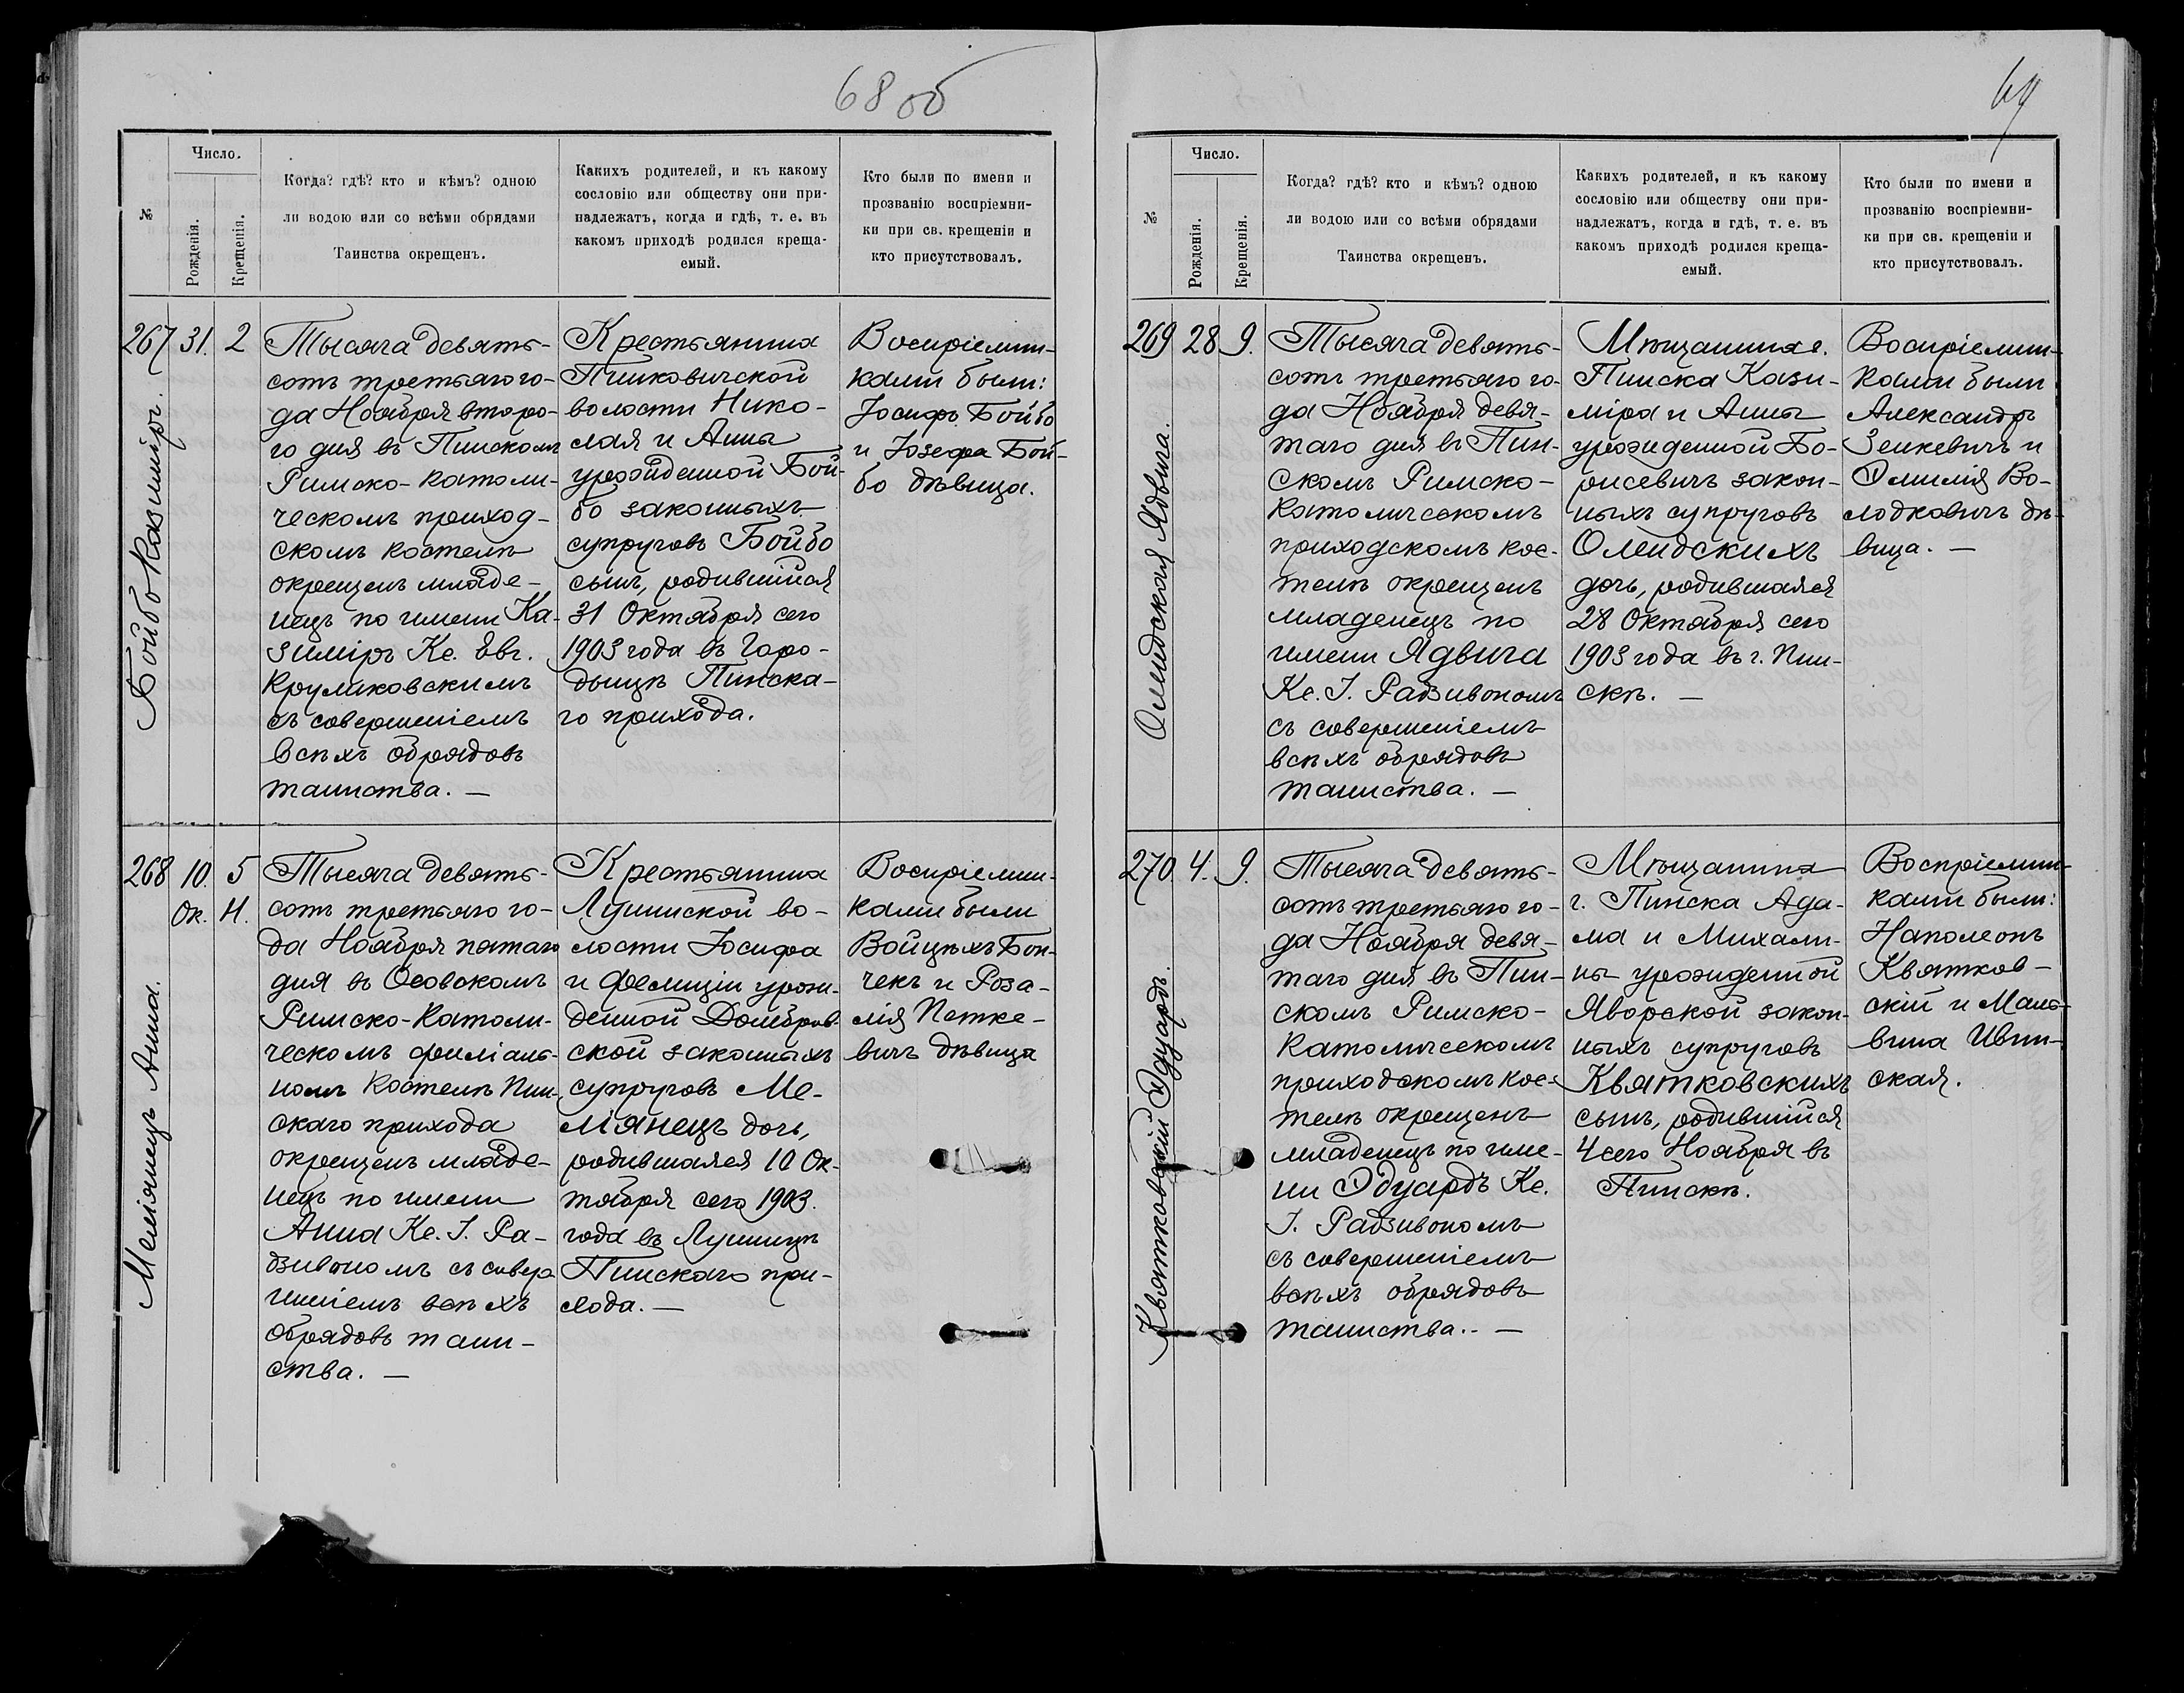 68 об
№
Число.
Рожденія.
Крещенія.
Когда? гдѣ? кто и кѣмъ? одною
ли водою или со всѣми обрядами
Таинства окрещенъ.
Какихъ родителей, и къ какому
сословію или обществу они при-
надлежатъ, когда и гдѣ, т. е. въ
какомъ приходѣ родился креща-
емый.
Кто были по имени и
прозванію воспріемни-
ки при св. крещеніи и
кто присутствовалъ.
267
Бойбо Казиміръ.
31.
2
Тысяча девять-
сотъ третьяго го-
да Ноября второ-
го дня въ Пинскомъ
Римско-католи-
ческомъ приход-
скомъ костелѣ
окрещенъ младе-
нецъ по имени Ка-
зиміръ Кс. Евг.
Круликовскимъ
съ совершеніемъ
всѣхъ обрядовъ
таинства. —
Крестьянина
Пинковичской
волости Нико-
лая и Анны
урожденной Бой-
бо законныхъ
супруговъ Бойбо
сынъ, родившійся
31 Октября сего
1903 года въ Горо-
дыщѣ Пинска-
го прихода.
Воспріемни-
ками были:
Іосифъ Бойбо
и Іозефа Бой-
бо дѣвица.
268
Меліянецъ Анна.
10.
Ок.
5
Н.
Тысяча девять-
сотъ третьяго го-
да Ноября пятаго
дня въ Осовскомъ
Римско-Католи-
ческомъ филіаль-
номъ Костелѣ Пин-
скаго прихода
окрещенъ младе-
нецъ по имени
Анна Кс. І. Ра-
дзивономъ съ совер-
шеніемъ всѣхъ
обрядовъ таин-
ства. —
Крестьянина
Лунинской во-
лости Іосифа
и Фелиціи урож-
денной Домбров-
ской законныхъ
супруговъ Ме-
ліянецъ дочь,
родившаяся 10 Ок-
тября сего 1903.
года въ Лунинцѣ
Пинскаго при-
хода. —
Воспріемни-
ками были
Войцѣхъ Бон-
чекъ и Роза-
лія Петке-
вичъ дѣвица
69
№
Число.
Рожденія.
Крещенія.
Когда? гдѣ? кто и кѣмъ? одною
ли водою или со всѣми обрядами
Таинства окрещенъ.
Какихъ родителей, и къ какому
сословію или обществу они при-
надлежатъ, когда и гдѣ, т. е. въ
какомъ приходѣ родился креща-
емый.
Кто были по имени и
прозванію воспріемни-
ки при св. крещеніи и
кто присутствовалъ.
269
Олендская Ядвига.
28
9.
Тысяча девять-
сотъ третьяго го-
да Ноября девя-
таго дня въ Пин-
скомъ Римско-
Католическомъ
приходскомъ кос-
телѣ окрещенъ
младенецъ по
имени Ядвига
Кс. І. Радзивономъ
съ совершеніемъ
всѣхъ обрядовъ
таинства. —
Мѣщанина г.
Пинска Кази-
міра и Анны
урожденной Бо-
рисевичъ закон-
ныхъ супруговъ
Олендскихъ
дочь, родившаяся
28 Октября сего
1903 года въ г. Пин-
скѣ. —
Воспріемни-
ками были
Александръ
Зенкевичъ и
Эмилія Во-
лодковичъ дѣ-
вица. —
270.
Квятковскій Эдуардъ.
4.
9.
Тысяча девять-
сотъ третьяго го-
да Ноября девя-
таго дня въ Пин-
скомъ Римско-
Католическомъ
приходскомъ кос-
телѣ окрещенъ
младенецъ по име-
ни Эдуардъ Кс.
І. Радзивономъ
съ совершеніемъ
всѣхъ обрядовъ
таинства. —
Мѣщанина
г. Пинска Ада-
ма и Михали-
ны урожденной
Яворской закон-
ныхъ супруговъ
Квятковскихъ
сынъ, родившійся
4 сего Ноября въ
Пинскѣ.
Воспріемни-
ками были:
Наполеонъ
Квятков-
скій и Маль-
вина Ивин-
ская.